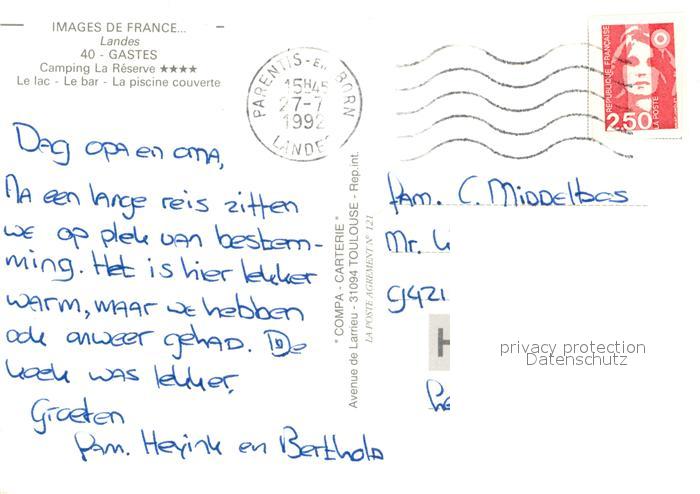 IMAGES DE FRANCE...
Landes
40 - GASTES
Camping La Réserve ★★★★
Le lac - Le bar - La piscine couverte
PARENTIS-EN-BORN
15H45
27-7
1992
LANDES
RÉPUBLIQUE FRANÇAISE
LA POSTE
2,50
Dag opa en oma,
Na een lange reis zitten
we op plek van bestem-
ming. Het is hier lekker
warm, maar we hebben
ook onweer gehad. De
koek was lekker.
Groeten
fam. Heyink en Berthold
" COMPA - CARTERIE "
Avenue de Larrieu - 31094 TOULOUSE - Rep.int.
LA POSTE AGREMENT N° 121
fam. C. Middelbos
Mr.
9421
H
privacy protection
Datenschutz